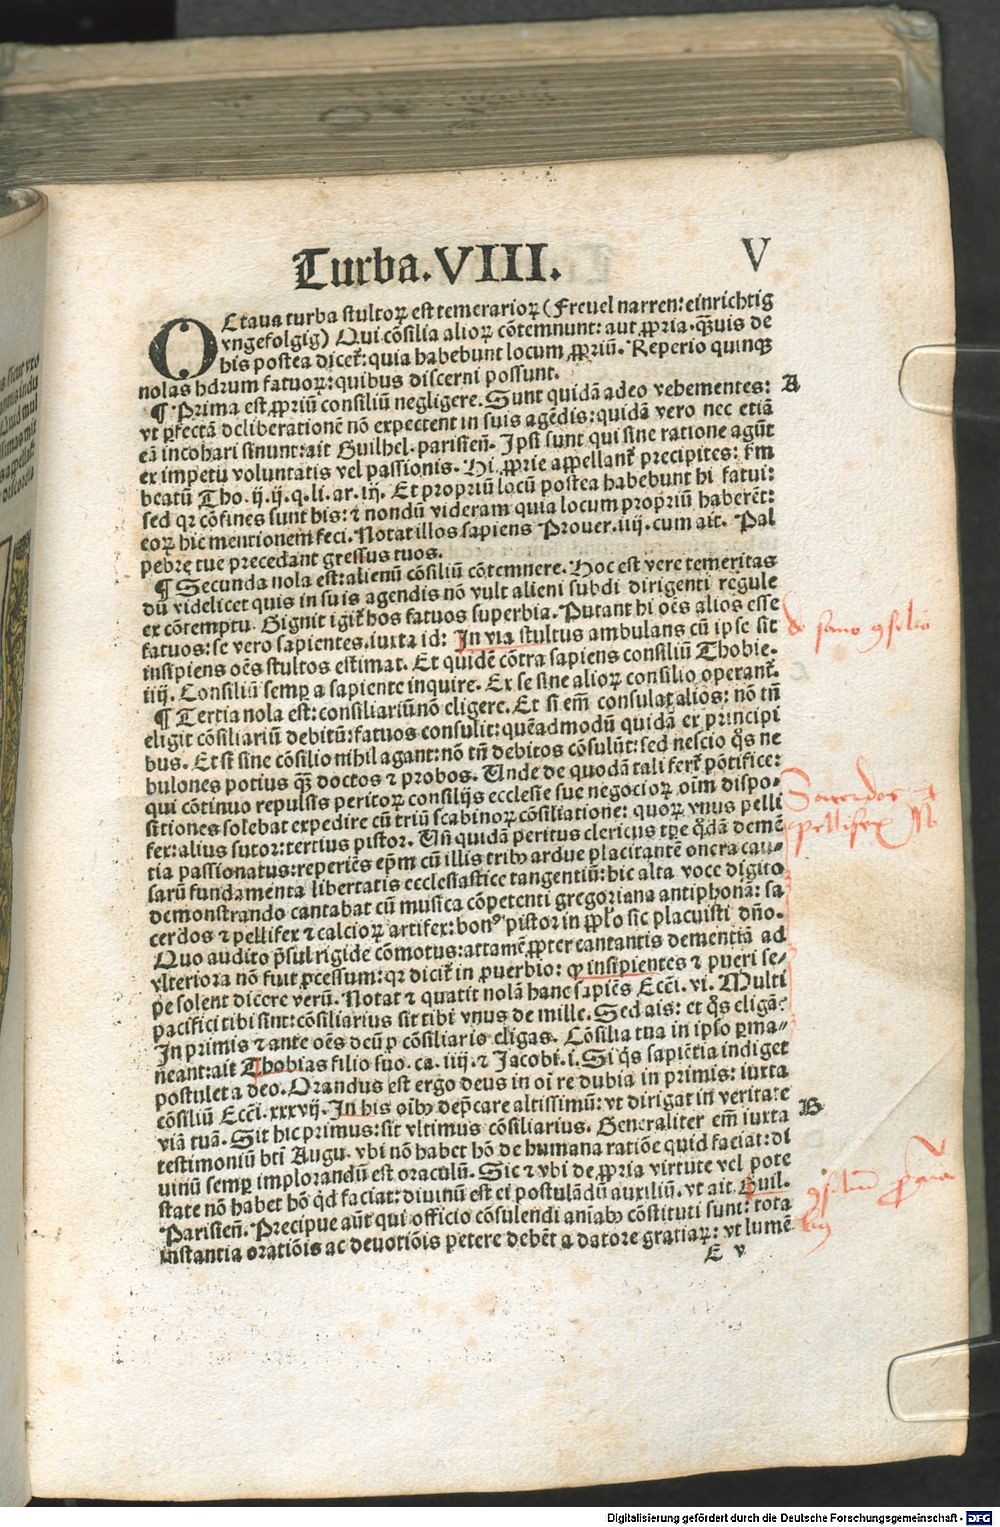 Turba.VIII.
V
OCtaua turba stultoꝝ est temerarioꝝ (Freuel narren: einrichtig
vngefolgig) Qui cõsilia alioꝝ cõtemnunt: aut ꝓpria. qͣuis de
his postea dicet̃: quia habebunt locum ꝓpriũ. Reperio quinqꝫ
nolas hoꝛum fatuoꝝ: quibus discerni possunt.
A
¶ Prima est ꝓpriũ consiliũ negligere. Sunt quidã adeo vehementes:
vt ꝑfectã deliberationẽ nõ expectent in suis agẽdis: quidã vero nec etiã
eã incohari sinunt: ait Guilhel. parisieñ. Ipsi sunt qui sine ratione agũt
ex impetu voluntatis vel passionis. Hi ꝓprie appellant̃ precipites: ẜm
beatũ Tho. ij. ij. q. li. ar. iij. Et propriũ locũ postea habebunt hi fatui:
sed qꝛ cõfines sunt his: ⁊ nondũ videram quia locum propriũ haberẽt:
eoꝝ hic mentionem feci. Notat illos sapiens Prouer. iiij. cum ait. Pal
pebrę tue precedant gressus tuos.
¶ Secunda nola est: alienũ cõsiliũ cõtemnere. Hoc est vere temeritas
dũ videlicet quis in suis agendis nõ vult alieni subdi dirigenti regule
ex cõtemptu. Gignit igit̃ hos fatuos superbia. Putant hi oẽs alios esse
fatuos: se vero sapientes. iuxta id: In via stultus ambulans cũ ipse sit
de sano ꝯsilio
insipiens oẽs stultos estimat. Et quidẽ cõtra sapiens consiliũ Thobie.
iiij. Consiliũ semꝑ a sapiente inquire. Ex se sine alioꝝ consilio operant̃.
¶ Tertia nola est: consiliariũ nõ eligere. Et si em̃ consulãt alios: nõ tñ
eligit cõsiliariũ debitũ: fatuos consulit: quẽadmodũ quidã ex principi
bus. Et si sine cõsilio nihil agant: nõ tñ debitos cõsulũt: sed nescio q̃s ne
bulones potius qͣꝫ doctos ⁊ probos. Unde de quodã tali fert̃ põtifice:
qui cõtinuo repulsis peritoꝝ consilijs ecclesie sue negocioꝝ oĩm dispo-
Sacerdos et
sitiones solebat expedire cũ triũ scabinoꝝ cõsiliatione: quoꝝ vnus pelli
pellifex
fex: alius sutor: tertius pistor. Uñ quidã peritus clericus tꝑe q̃dã demẽ
tia passionatus: reperiẽs ep̃m cũ illis tribꝰ ardue placitantẽ onera cau-
sarũ fundamenta libertatis ecclesiastice tangentiũ: hic alta voce digito
demonstrando cantabat cũ musica cõpetenti gregoriana antiphonã: sa
cerdos ⁊ pellifex ⁊ calcioꝝ artifex: bonꝰ pistor in pp̃lo sic placuisti dño.
Quo audito p̃sul rigide cõmotus: attamẽ ꝓpter cantantis dementiã ad
vlteriora nõ fuit ꝓcessum: qꝛ dicit̃ in ꝓuerbio: ꝙ insipientes ⁊ pueri se-
pe solent dicere verũ. Notat ⁊ quatit nolã hanc sapiẽs Ecci̇. vi. Multi
pacifici tibi sint: cõsiliarius sit tibi vnus de mille. Sed ais: et q̃s eligã?
In primis ⁊ ante oẽs deũ ꝓ cõsiliario eligas. Cõsilia tua in ipso ꝑma-
neant: ait Thobias filio suo. ca. iiij. ⁊ Jacobi. i. Si q̃s sapiẽtia indiget
postulet a deo. Orandus est ergo deus in oĩ re dubia in primis: iuxta
cõsiliũ Ecci̇. xxxvij. In his oĩbꝰ dep̃care altissimũ: vt dirigat in veritate
B
viã tuã. Sit hic primus: sit vltimus cõsiliarius. Generaliter em̃ iuxta
testimoniũ bti Augu. vbi nõ habet hõ de humana ratiõe quid faciat: di
uinũ semꝑ implorandũ est oraculũ. Sic ⁊ vbi de ꝓpria virtute vel pote
state nõ habet hõ qd̃ faciat: diuinũ est ei postulãdũ auxiliũ. vt ait Guil.
Parisieñ. Precipue aũt qui officio cõsulendi aniabꝰ cõstituti sunt: tota
instantia oratiõis ac deuotiõis petere debẽt a datore gratiaꝝ: vt lumẽ
E v
Digitalisierung gefördert durch die Deutsche Forschungsgemeinschaft - DFG